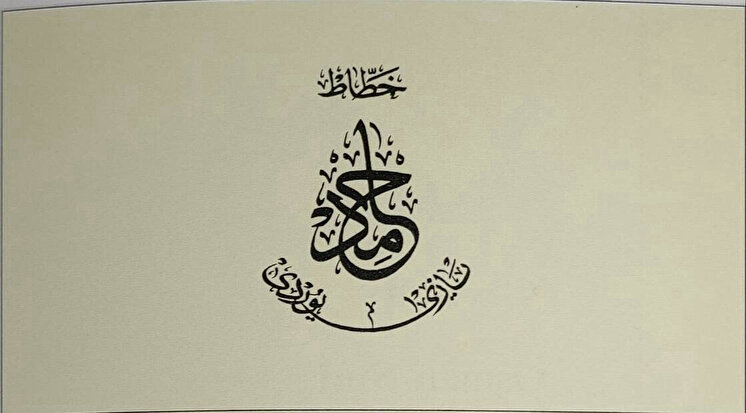 خَطَّاط
حَامِد
يازى يُوردى